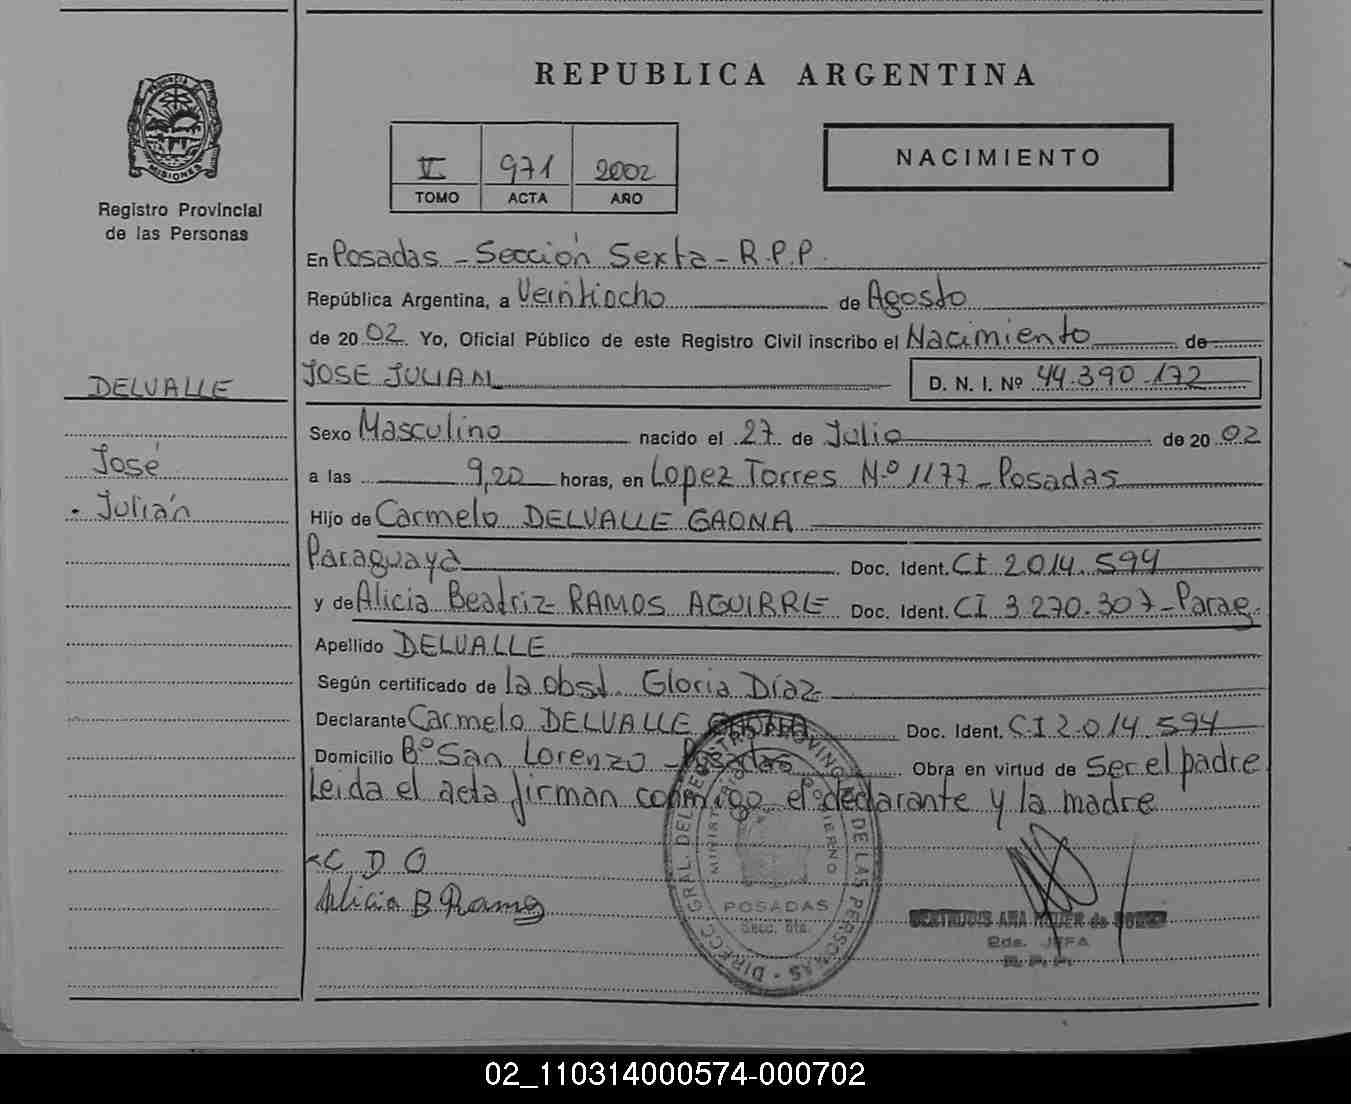 REPUBLICA ARGENTINA
MISIONES
Registro Provincial
de las Personas
V 971 2002
TOMO ACTA AÑO
NACIMIENTO
En Posadas - Sección Sexta - R.P.P.
República Argentina, a Veintiocho de Agosto
de 2002 Yo, Oficial Público de este Registro Civil inscribo el Nacimiento de
JOSE JULIAN D. N. I. Nº 44.390.172
DELVALLE
José
Julián
Sexo Masculino nacido el 27 de Julio de 2002
a las 9,20 horas, en Lopez Torres Nº 1177 - Posadas
Hijo de Carmelo DELVALLE GAONA
Paraguaya Doc. Ident. CI 2.014.594
y de Alicia Beatriz RAMOS AGUIRRE Doc. Ident. CI 3.270.307 - Parag.
Apellido DELVALLE
Según certificado de la obst. Gloria Díaz
Declarante Carmelo DELVALLE GAONA Doc. Ident. CI 2.014.594
Domicilio Bº San Lorenzo - Posadas Obra en virtud de Ser el padre
Leida el acta firman conmigo el declarante y la madre
C D O
Alicia B Ramos
DIRECC. GRAL. DEL REGISTRO PROVINC. DE LAS PERSONAS
MINISTERIO GOBIERNO
POSADAS
Secc. 6ta.
GERTRUDIS ANA de
2da. JEFA
R. P. P.
02_110314000574-000702